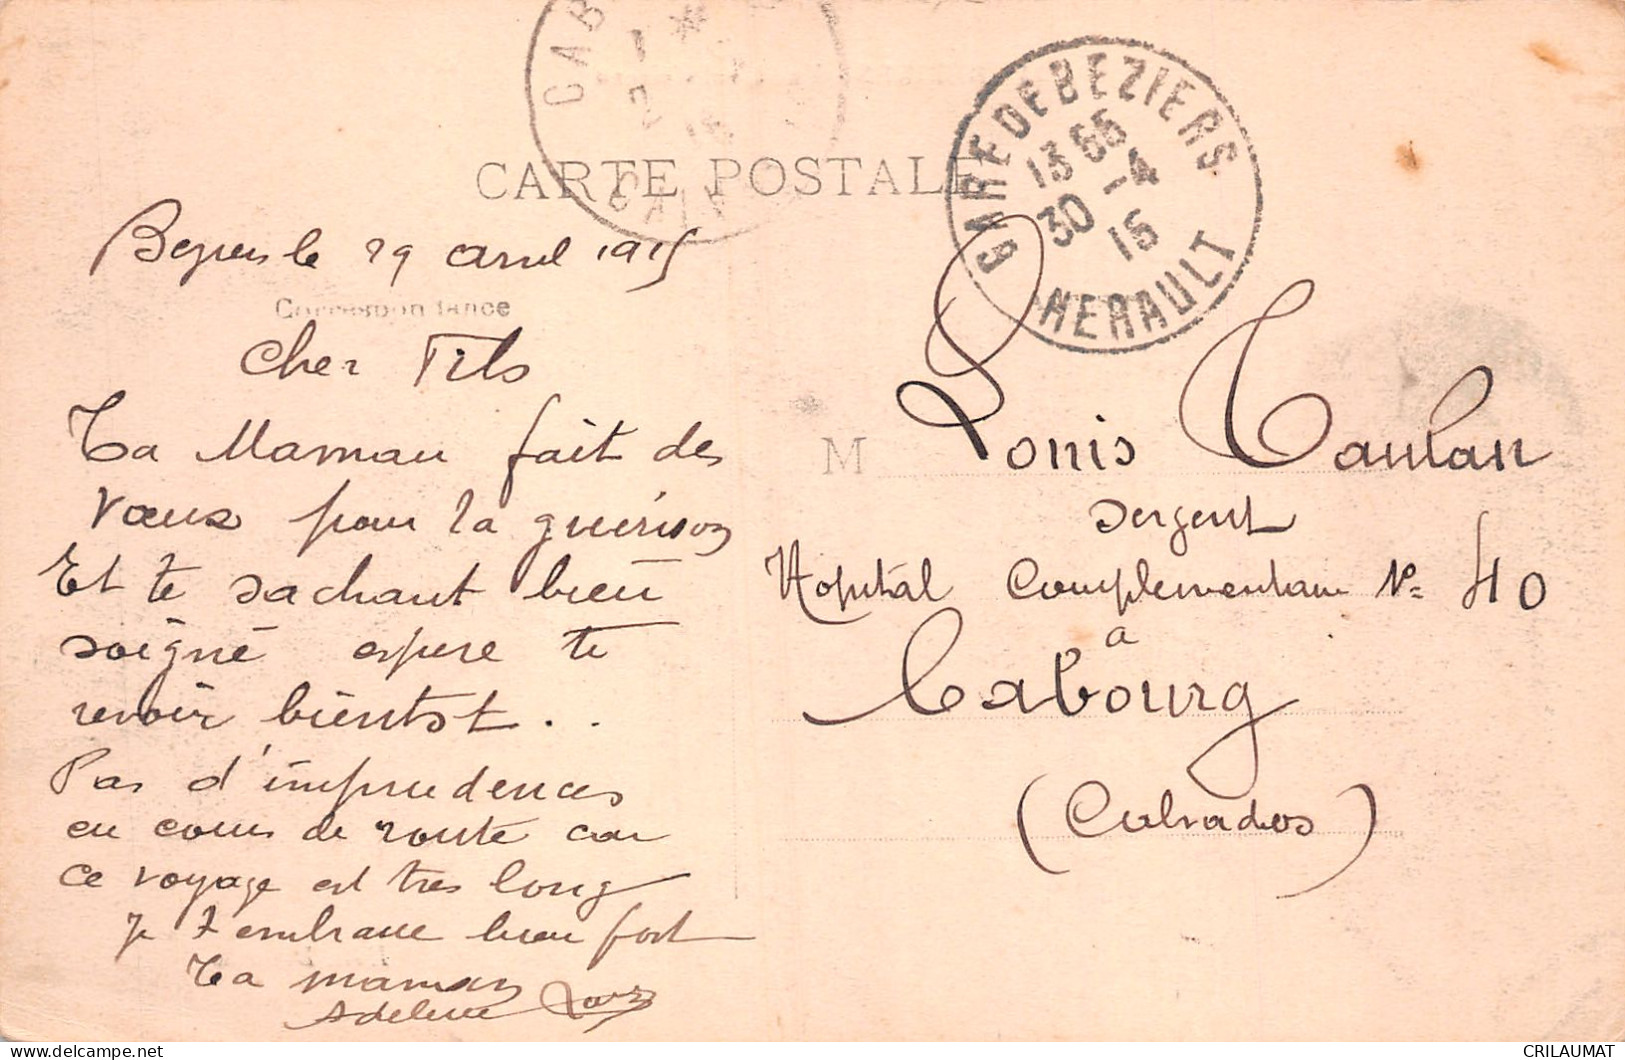 CARTE POSTALE
Beziers le 29 avril 1915
Correspondance
Cher Fils
Ta Maman fait des
vœux pour la guérison
Et te sachant bien
soigné espere te
revoir bientot . .
Pas d'imprudences
en cours de route car
ce voyage est tres long
Je t'embrasse bien fort
Ta maman
Adeline
GARE DE BEZIERS
13 55
30 -4
15
HERAULT
CAB
1 *
2
15
M Louis Taulan
sergent
Hopital Complementaire N= 40
a
Cabourg
(Calvados)
CRILAUMAT